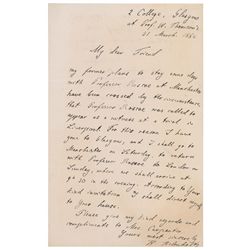 2 College, Glasgow
at Prof W. Thomson's
21 March 1884
My dear Friend
my former plans to stay some days
with Professor Roscoe at Manchester
have been crossed by the circumstance
that Professor Roscoe was called to
appear as a witness at a trial in
Liverpool. For this reason I have
gone to Glasgow, and I shall go to
Manchester on Saturday to return
with Professor Roscoe to London on
Sunday, when we shall arrive at
5.30 in the evening. According to your
kind invitation I shall direct myself
to Your house.
Please give my kind regards and
compliments to Mrs. Carpenter
Yours most sincerely